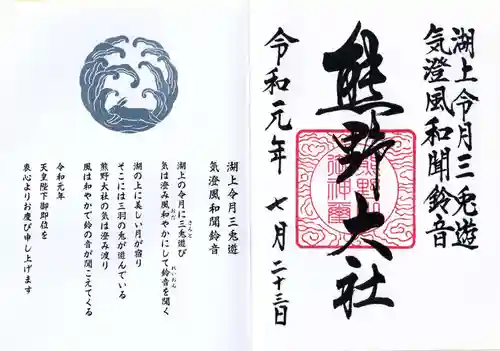 湖上令月三兎遊
気澄風和聞鈴音
熊野大社
令和元年 七月二十三日
湖上令月三兎遊
気澄風和聞鈴音
湖上の令月に三兎遊び
さんと
気は澄み風和やかにして鈴音を聞く
おだ
れいおん
湖の上に美しい月が宿り
そこには三羽の兎が遊んでいる
熊野大社の気は澄み渡り
風は和やかで鈴の音が聞こえてくる
令和元年
天皇陛下御即位を
衷心よりお慶び申し上げます